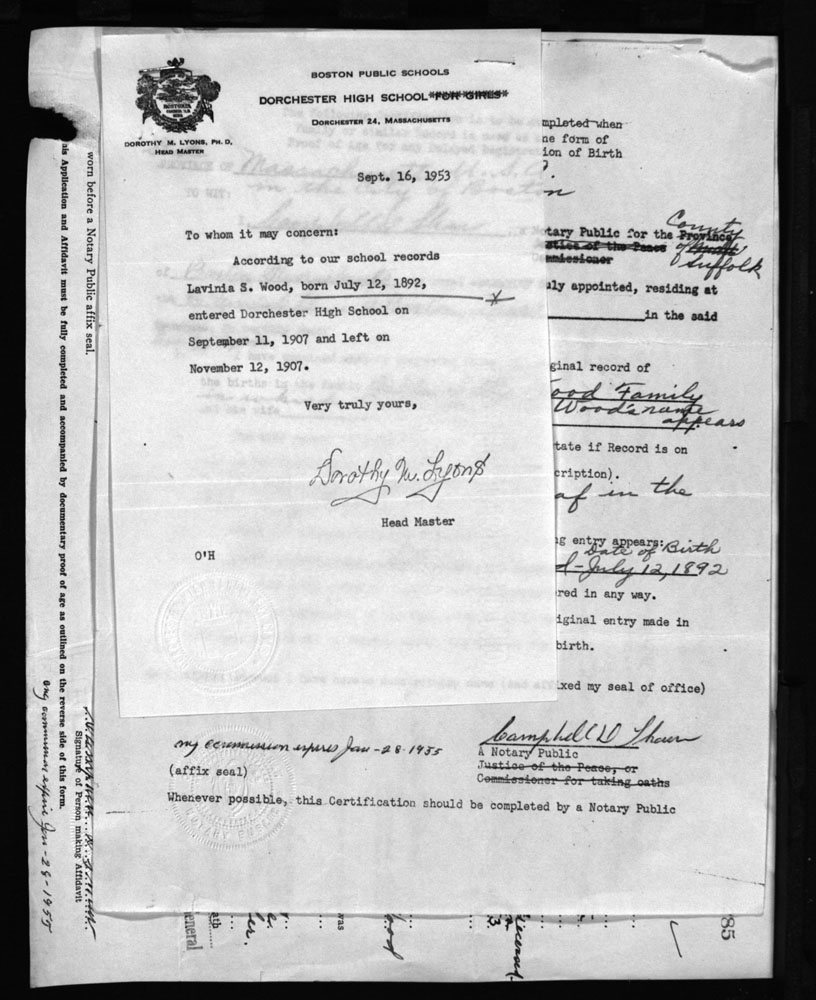 BOSTON PUBLIC SCHOOLS
DORCHESTER HIGH SCHOOL FOR GIRLS
DORCHESTER 24, MASSACHUSETTS
BOSTONIA
DOROTHY M. LYONS, PH. D.
HEAD MASTER
Sept. 16, 1953
To whom it may concern:
According to our school records
Lavinia S. Wood, born July 12, 1892,
entered Dorchester High School on
September 11, 1907 and left on
November 12, 1907.
Very truly yours,
Dorothy M. Lyons
Head Master
O'H
mpleted when
ne form of
ion of Birth
?
n
County
tary Public for the Province
stice of the Peace of
Suffolk
mmissioner
uly appointed, residing at
in the said
ginal record of
ood Family
Wood's name
appears
tate if Record is on
cription).
af in the
ng entry appears:
Date of Birth
d - July 12, 1892
red in any way.
iginal entry made in
birth.
ixed my seal of office)
my commission expires Jan - 28 - 1955
Campbell D Shaw
A Notary Public
Justice of the Peace, or
Commissioner for taking oaths
(affix seal)
Whenever possible, this Certification should be completed by a Notary Public
worn before a Notary Public affix seal.
his Application and Affidavit must be fully completed and accompanied by documentary proof of age as outlined on the reverse side of this form.
Signature of Person making Affidavit
my commission expires Jan - 28 - 1955
eneral
ath
was
85